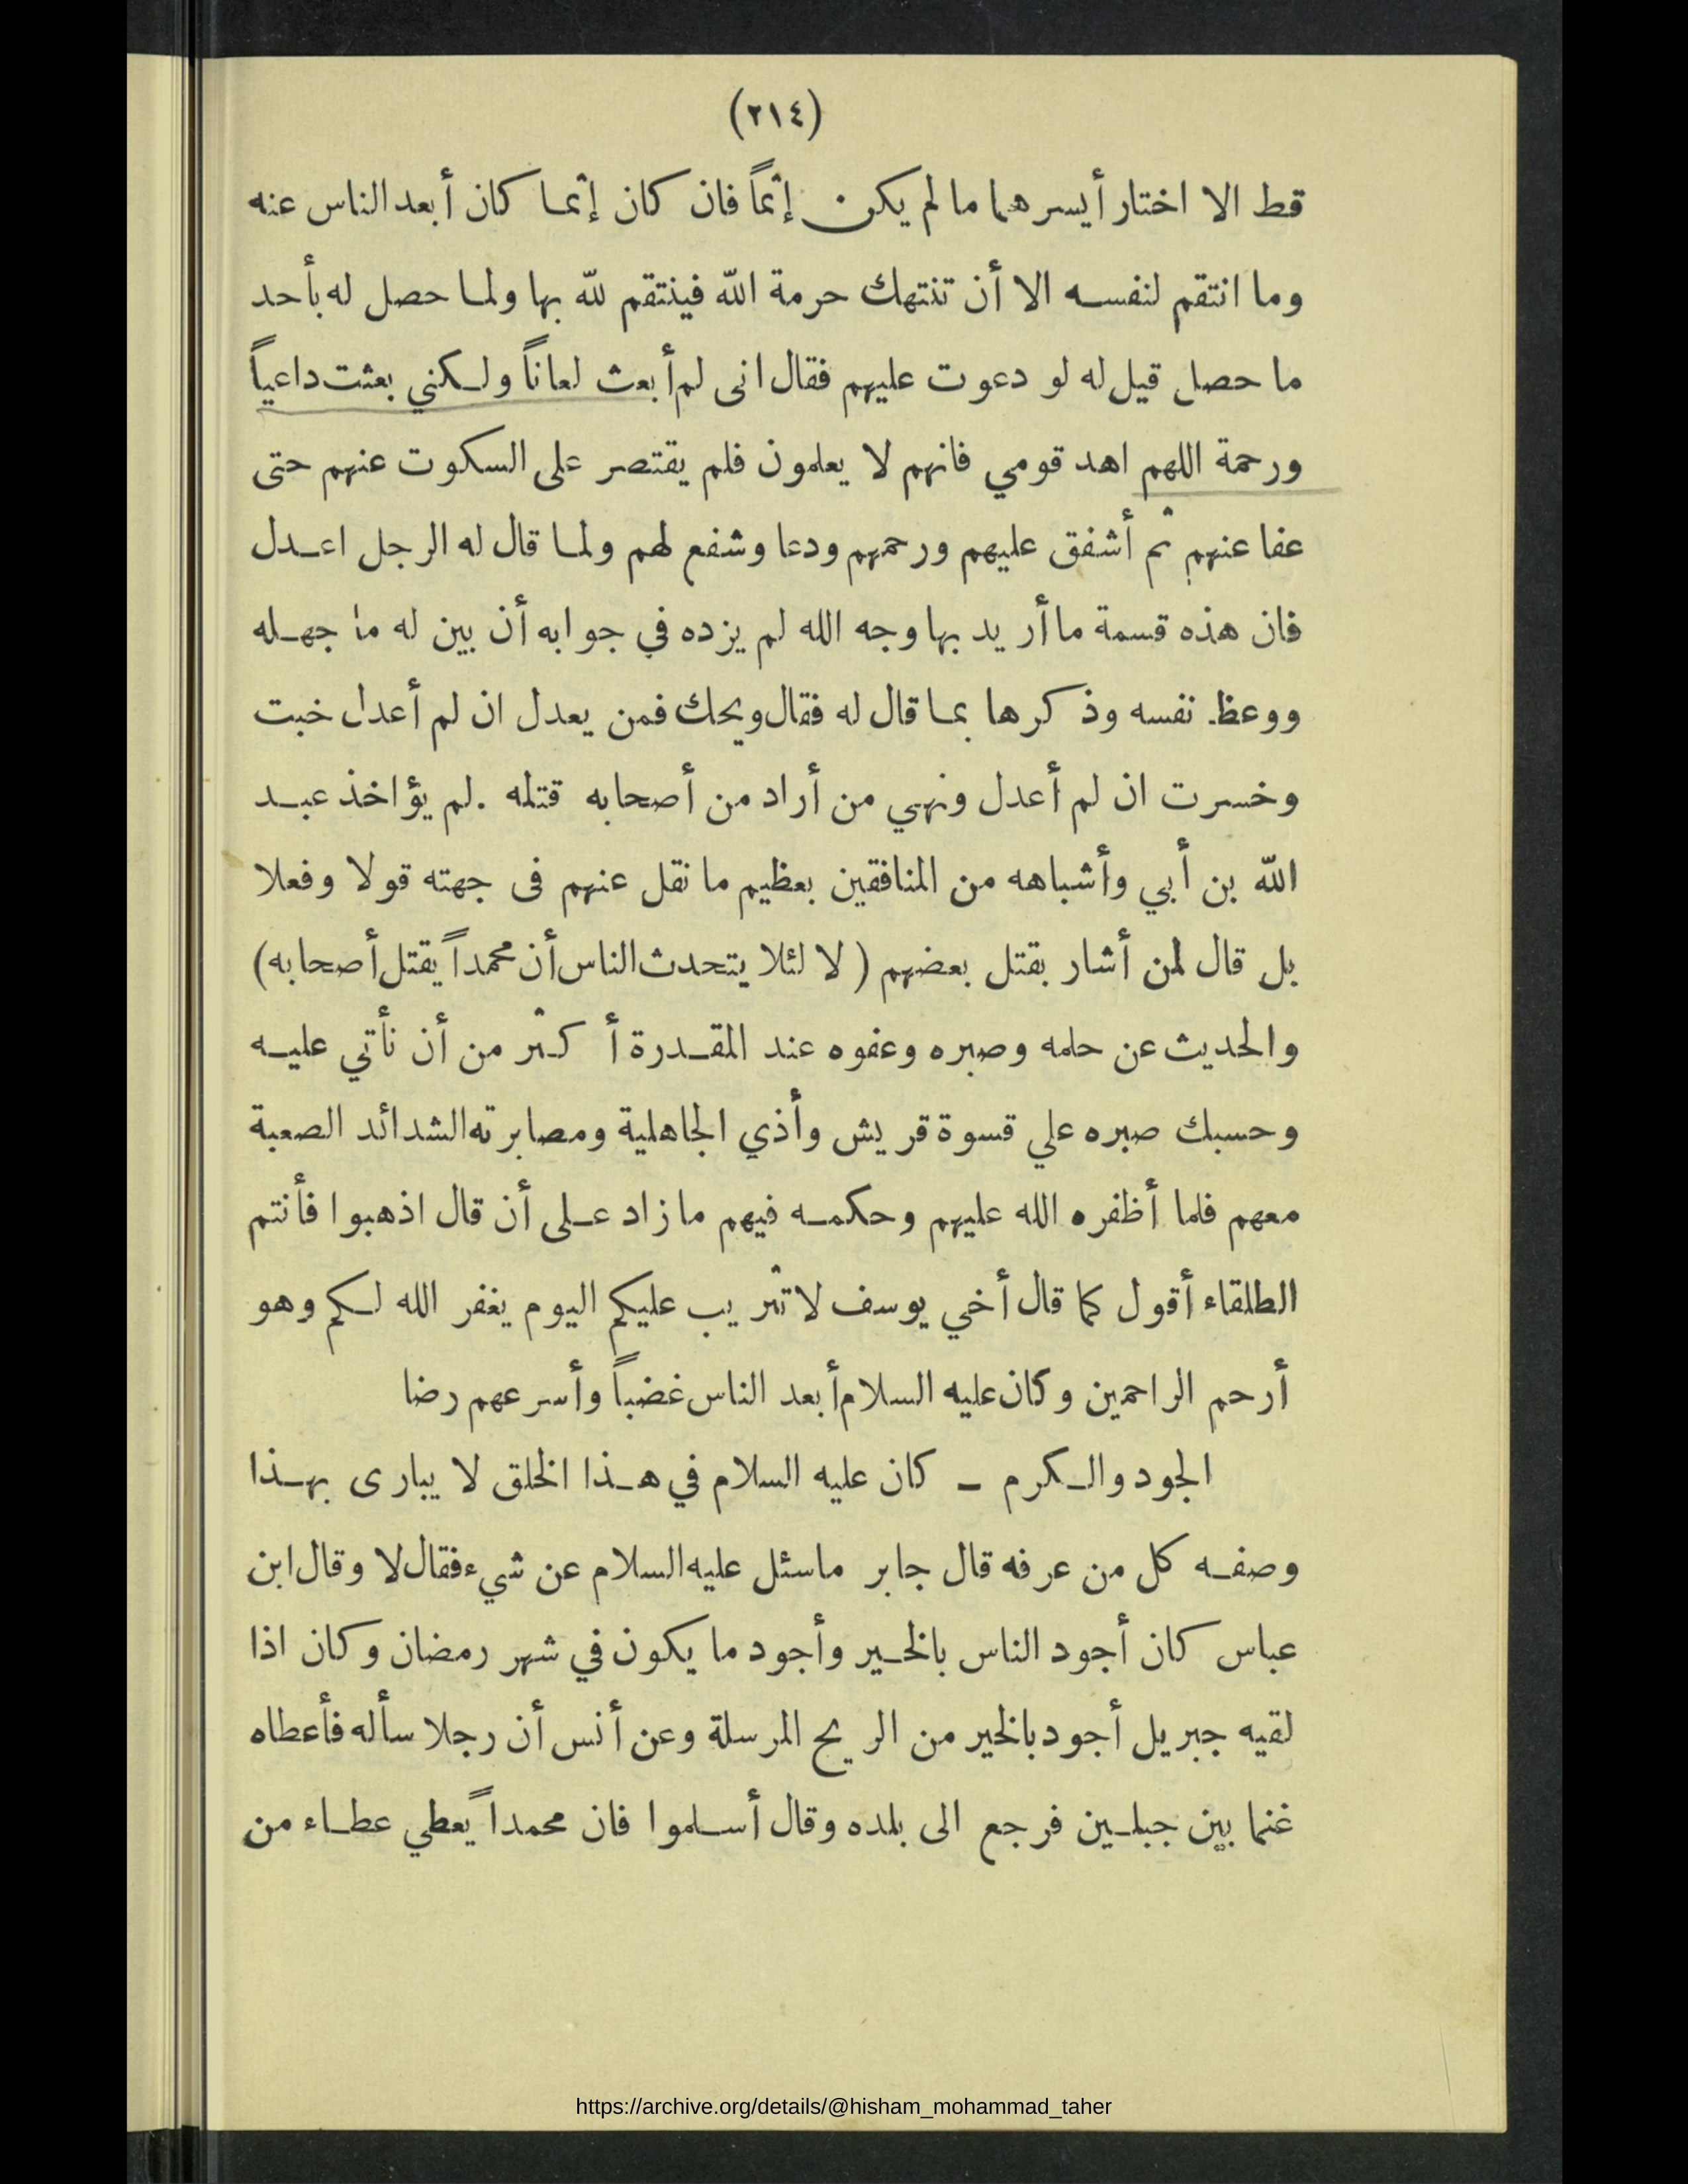 (٢١٤)
قط الا اختار أيسرهما ما لم يكن إثماً فان كان إثما كان أبعد الناس عنه
وما انتقم لنفسه الا أن تنتهك حرمة الله فينتقم لله بها ولما حصل له بأحد
ما حصل قيل له لو دعوت عليهم فقال انى لم أبعث لعاناً ولكني بعثت داعياً
ورحمة اللهم اهد قومي فانهم لا يعلمون فلم يقتصر على السكوت عنهم حتى
عفا عنهم ثم أشفق عليهم ورحمهم ودعا وشفع لهم ولما قال له الرجل اعدل
فان هذه قسمة ما أريد بها وجه الله لم يزده في جوابه أن بين له ما جهله
ووعظ نفسه وذكرها بما قال له فقال ويحك فمن يعدل ان لم أعدل خبت
وخسرت ان لم أعدل ونهي من أراد من أصحابه قتله . لم يؤاخذ عبد
الله بن أبي وأشباهه من المنافقين بعظيم ما نقل عنهم فى جهته قولا وفعلا
بل قال لمن أشار بقتل بعضهم ( لا لئلا يتحدث الناس أن محمداً يقتل أصحابه)
والحديث عن حلمه وصبره وعفوه عند المقدرة أكثر من أن نأتي عليه
وحسبك صبره علي قسوة قريش وأذي الجاهلية ومصابرته الشدائد الصعبة
معهم فلما أظفره الله عليهم وحكمه فيهم ما زاد على أن قال اذهبوا فأنتم
الطلقاء أقول كما قال أخي يوسف لا تثريب عليكم اليوم يغفر الله لكم وهو
أرحم الراحمين وكان عليه السلام أبعد الناس غضباً وأسرعهم رضا
الجود والكرم – كان عليه السلام في هذا الخلق لا يبارى بهذا
وصفه كل من عرفه قال جابر ما سئل عليه السلام عن شيء فقال لا وقال ابن
عباس كان أجود الناس بالخير وأجود ما يكون في شهر رمضان وكان اذا
لقيه جبريل أجود بالخير من الريح المرسلة وعن أنس أن رجلا سأله فأعطاه
غنما بين جبلين فرجع الى بلده وقال أسلموا فان محمداً يعطي عطاء من
https://archive.org/details/@hisham_mohammad_taher